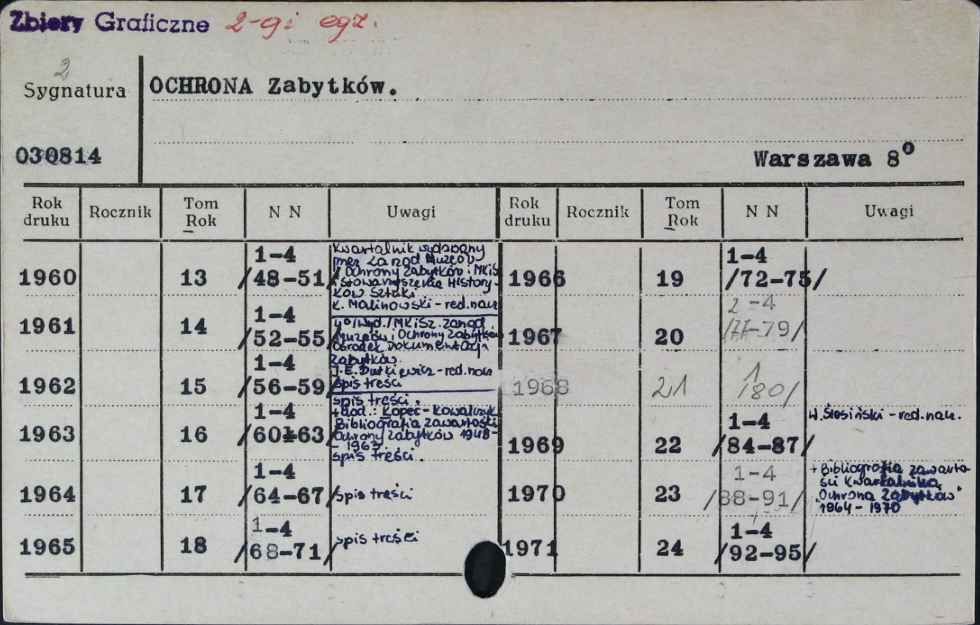 Zbiory Graficzne 2-gi egz.
2
Sygnatura
OCHRONA Zabytków.
030814
Warszawa 8°
Rok druku Rocznik Tom Rok N N Uwagi Rok druku Rocznik Tom Rok N N Uwagi
1960 13 1-4 /48-51/
Kwartalnik wydawany
przez Zarząd Muzeów
i Ochrony Zabytków i MKiS
i Stowarzyszenie History-
ków Sztuki
K. Malinowski - red. nacz.
1961 14 1-4 /52-55/
4°/Wyd./MKiSz. Zarząd
Muzeów i Ochrony Zabytków
Ośrodek Dokumentacji
Zabytków.
1962 15 1-4 /56-59/
J.E. Dutkiewicz - red. nacz.
spis treści
1963 16 1-4 /60-63/
spis treści.
+ Dod.: Kopeć-Kowalczyk
Bibliografia zawartości
Ochrony Zabytków 1948-
- 1963
spis treści.
1964 17 1-4 /64-67/ spis treści
1965 18 1-4 /68-71/ spis treści
1966 19 1-4 /72-75/
1967 20 2-4 /77-79/
1968 21 1 /80/
1969 22 1-4 /84-87/ W. Ślesiński - red. nacz.
1970 23 1-4 /88-91/
+ Bibliografia zawarto-
ści kwartalnika
"Ochrona Zabytków"
1964 - 1970
1971 24 1-4 /92-95/